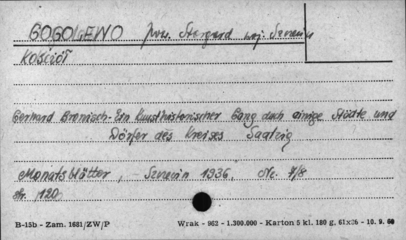 GOGOLEWO pow. Stargard woj. Szczecin
KOŚCIÓŁ
Gerhard Bronisch - Ein Kunsthistorischer Gang duch einige Städte und
Dörfer des Kreises Saatzig
Monatsblätter, Szczecin 1936, Nr. 7/8
str. 120
B-15b - Zam. 1681/ZW/P Wrak - 962 - 1.300.000 - Karton 5 kl. 180 g. 61x86 - 10. 9. 60